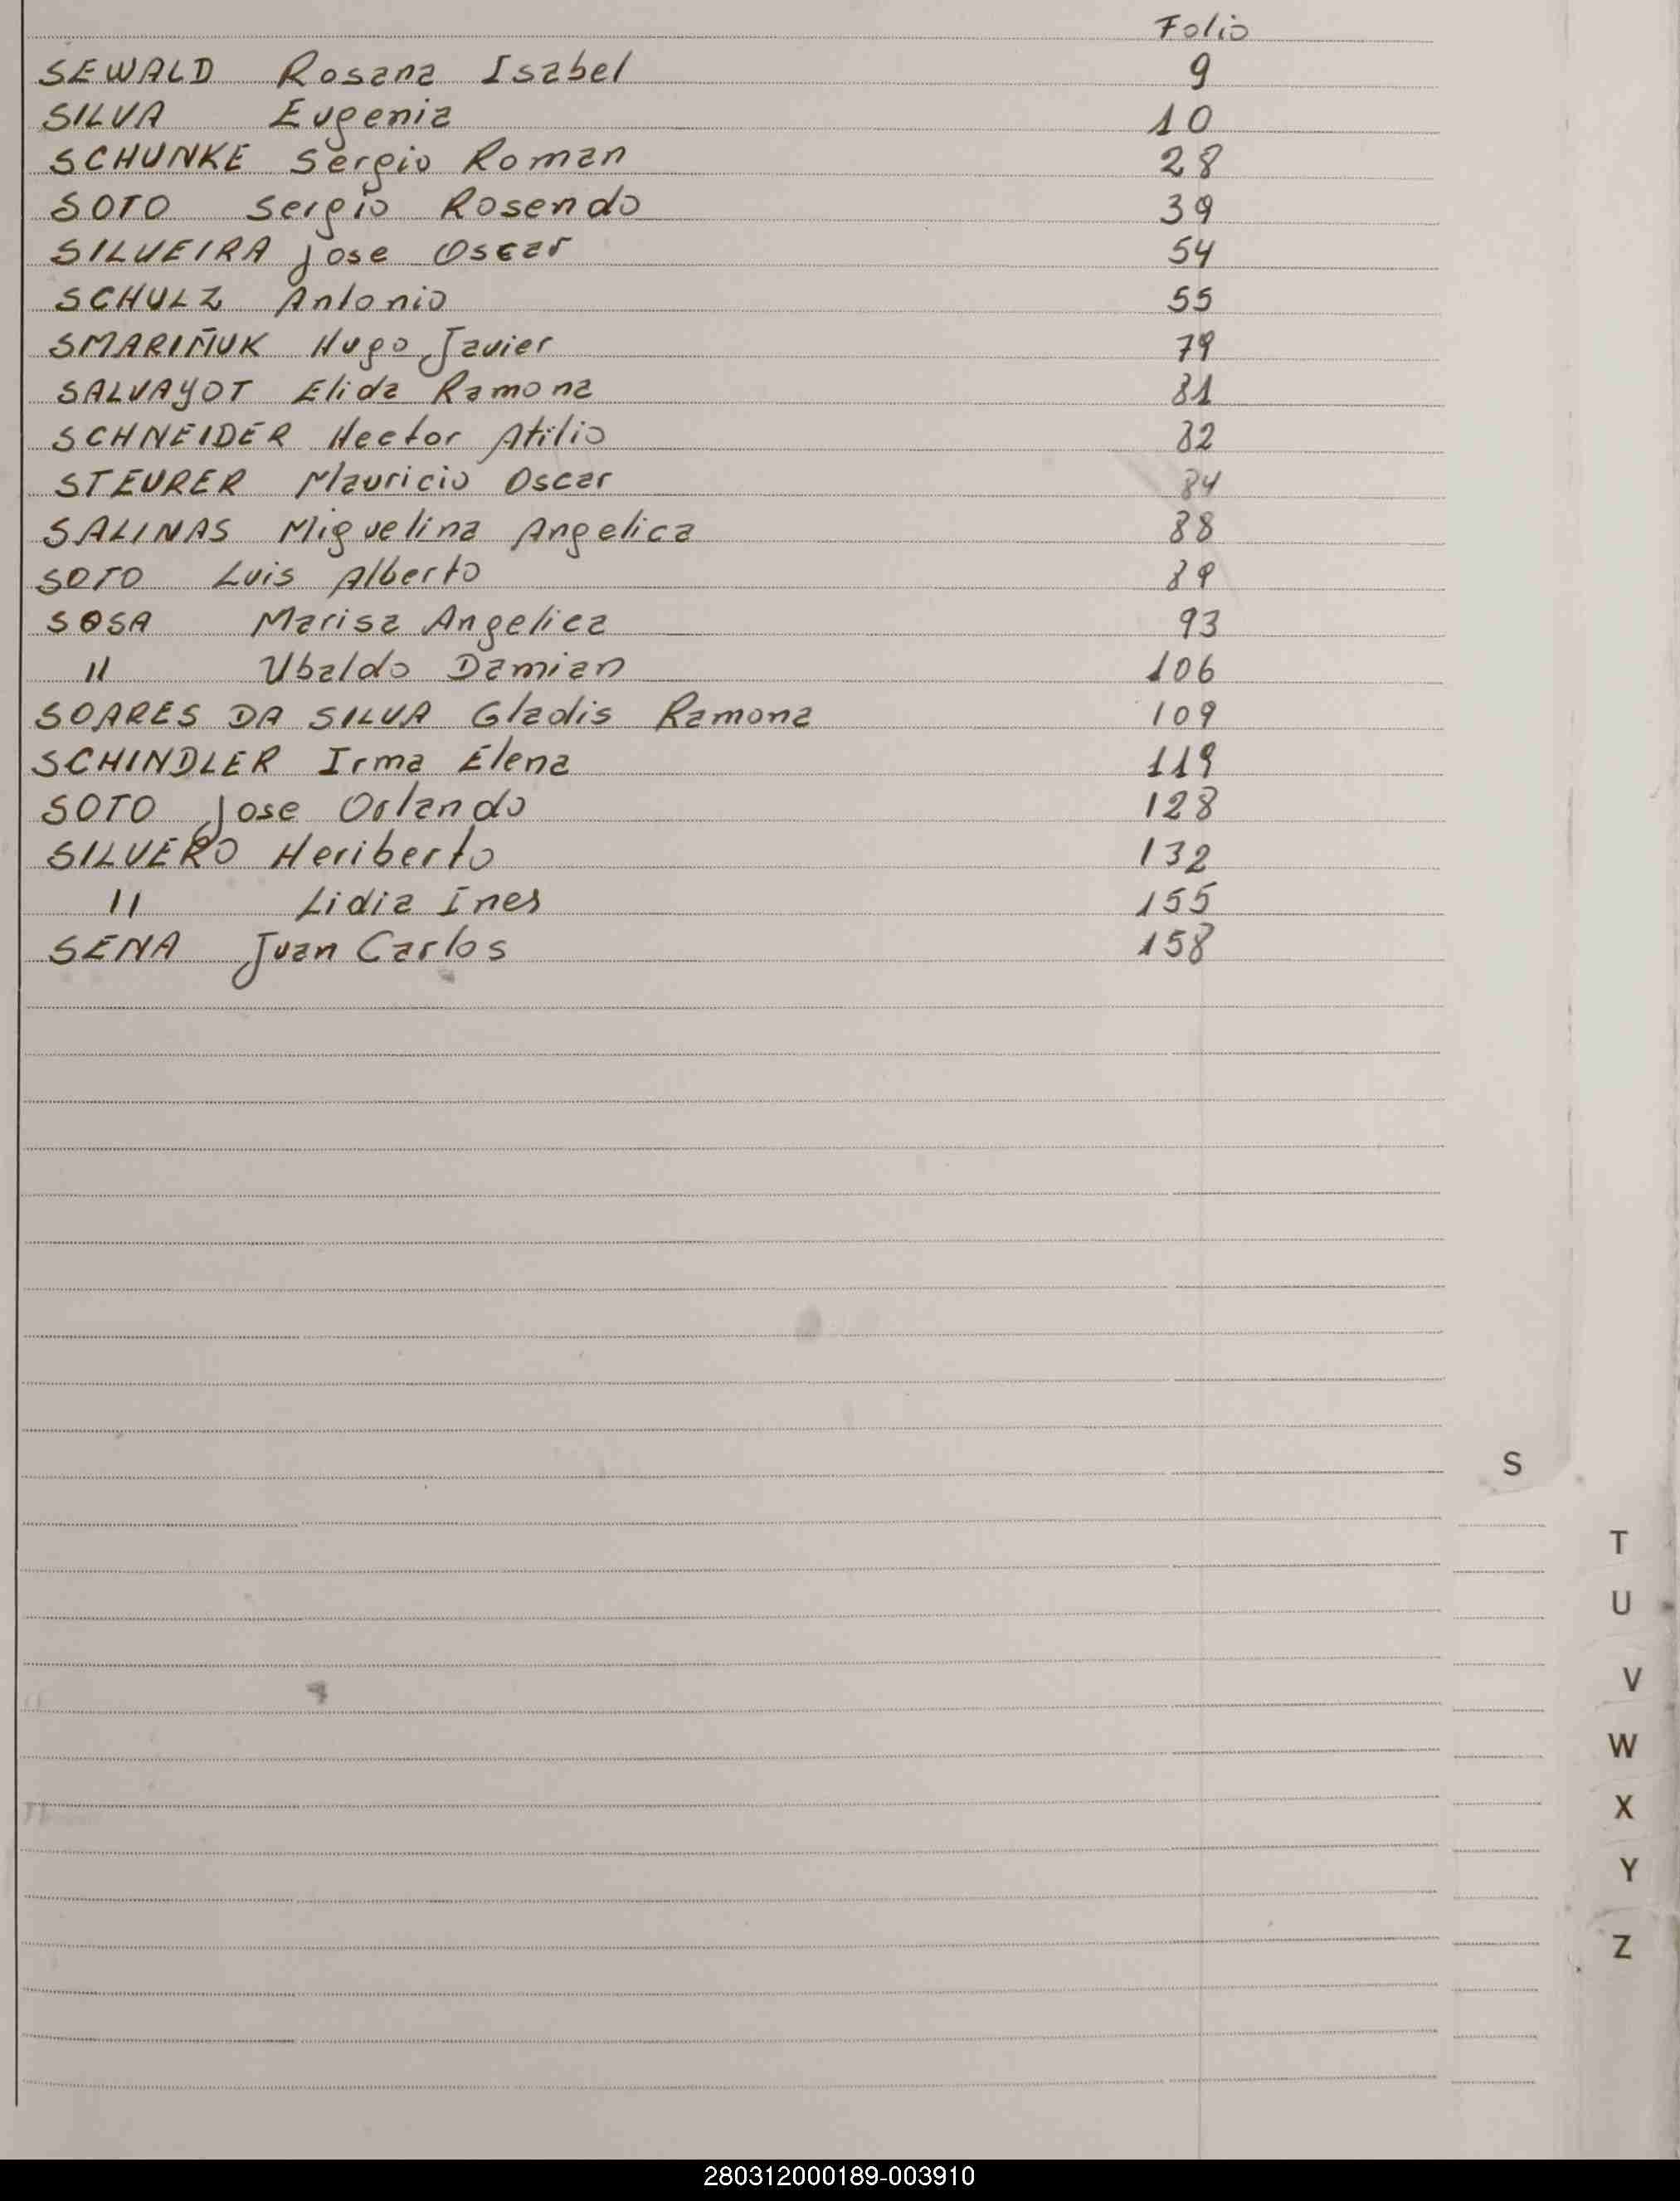 Folio
SEWALD Rosana Isabel 9
SILVA Eugenia 10
SCHUNKE Sergio Roman 28
SOTO Sergio Rosendo 39
SILVEIRA Jose Oscar 54
SCHULZ Antonio 55
SMARIÑUK Hugo Javier 79
SALVAYOT Elida Ramona 81
SCHNEIDER Hector Atilio 82
STEURER Mauricio Oscar 84
SALINAS Miguelina Angelica 88
SOTO Luis Alberto 89
SOSA Marisa Angelica 93
" Ubaldo Damian 106
SOARES DA SILVA Gladis Ramona 109
SCHINDLER Irma Elena 119
SOTO Jose Orlando 128
SILVERO Heriberto 132
" Lidia Ines 155
SENA Juan Carlos 158
S
T
U
V
W
X
Y
Z
280312000189-003910